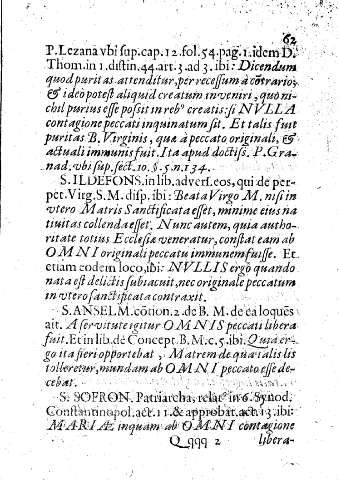 62
P. Lezana vbi sup. cap. 12. fol. 54. pag. 1. idem D.
Thom. in 1. distin. 44. art. 3. ad 3. ibi: Dicendum
quod puritas attenditur, per recessum à cõtrario;
& ideo potest aliquid creatum inveniri, quo ni-
chil purius esse possit in rebꝰ creatis: si NVLLA
contagione peccati inquinatum sit. Et talis fuit
puritas B. Virginis, quæ à peccato originali, &
actuali immunis fuit. Ita apud doctiss. P. Gra-
nad. vbi sup. sect. 10. §. 5. n. 134.
S. ILDEFONS. in lib. advers. eos, qui de per-
pet. Virg. S. M. disp. ibi: Beata Virgo M. nisi in
vtero Matris Sanctificata esset, minime eius na
tiuitas collenda esset. Nunc autem, quia autho-
ritate totius Ecclesiæ veneratur, constat eam ab
OMNI originali peccatu immunem fuisse. Et
etiam eodem loco, ibi: NVLLIS ergò quando
nata est delictis subiacuit, nec originale peccatum
in vtero sanctificata contraxit.
S. ANSELM. cõtion. 2. de B. M. de ea loquẽs
ait. A servitute igitur OMNIS peccati libera
fuit. Et in lib. de Concept. B. M. c. 5. ibi. Quia er-
go ita fieri oportebat, Matrem de qua talis lis
tolleretur, mundam ab OMNI peccato esse de-
cebat.
S. SOFRON. Patriarcha, relatꝰ in 6. Synod.
Constantinopol. act. 11. & approbat. act. 13. ibi:
MARIÆ inquam ab OMNI contagione
Q qqq 2 libera-